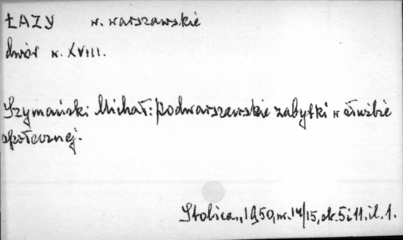 ŁAZY w. warszawskie
dwór w. XVIII.
Szymański Michał: Podwarszawskie zabytki w służbie
społecznej.
Stolica, 1950, nr. 14/15, str. 5 i 11, il. 1.